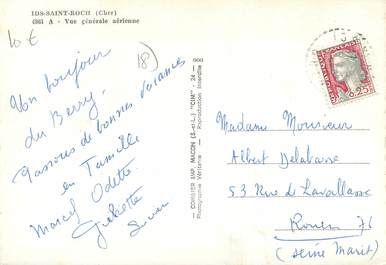 IDS-SAINT-ROCH (Cher)
4361 A - Vue générale aérienne
10 €
18)
Un bonjour
du Berry.
Passons de bonnes vacances
en famille
Marcel Odette
COMBIER IMP. MACON (S.-et-L.) "CIM" - 24 -
Photographie Véritable - Reproduction Interdite
Madame Monsieur
Albert Delabarre
53 Rue de Lavallasse
Rouen 76
(Seine Marit)